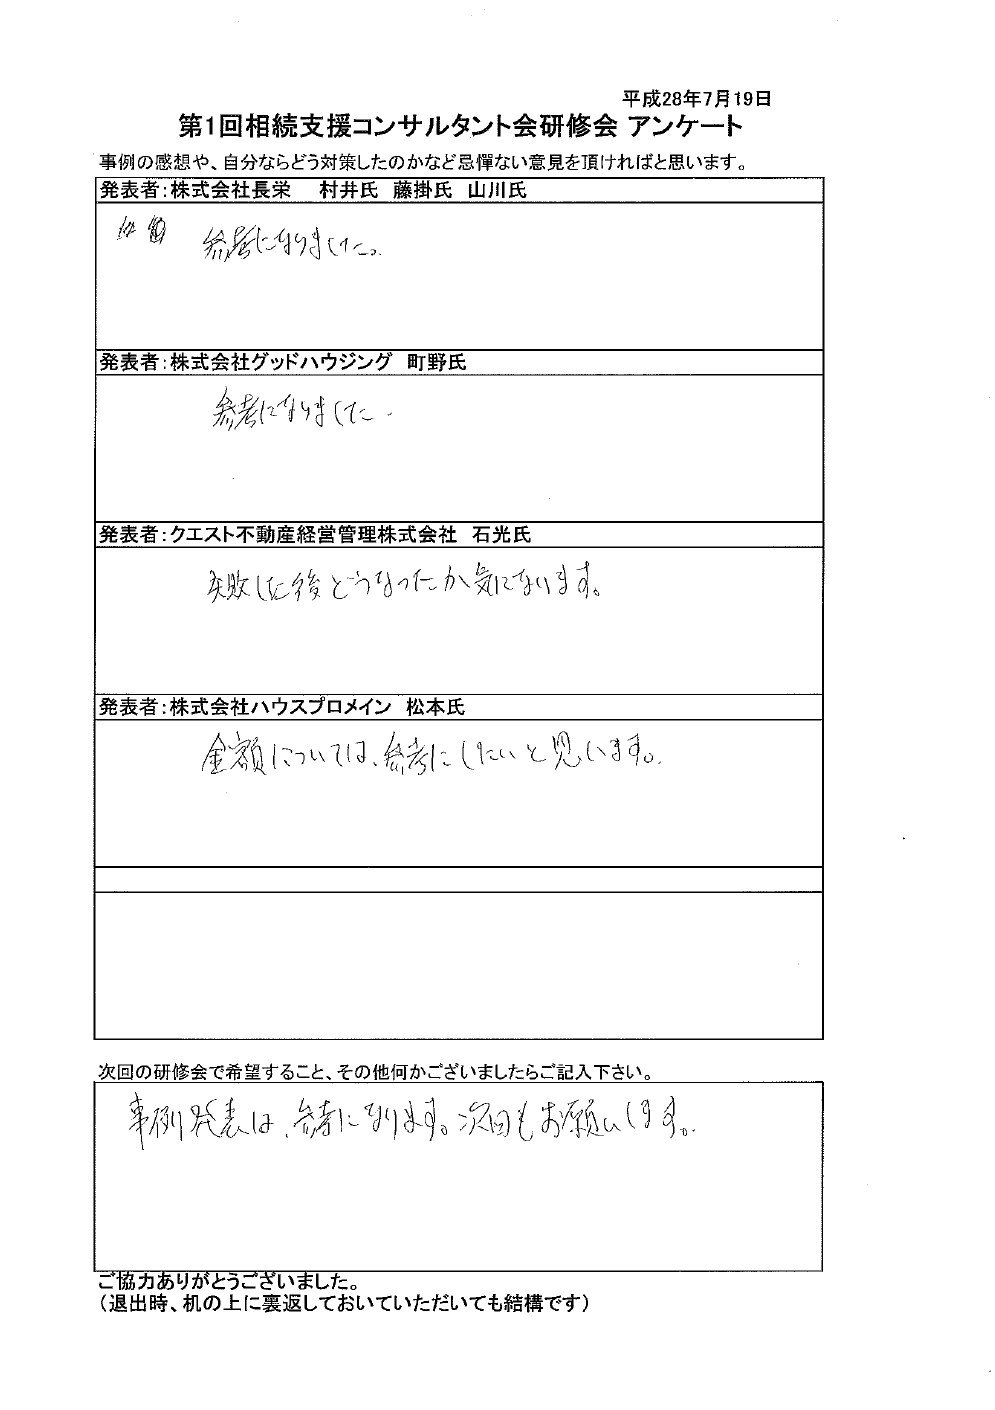 平成28年7月19日
第1回相続支援コンサルタント会研修会 アンケート
事例の感想や、自分ならどう対策したのかなど忌憚ない意見を頂ければと思います。
発表者:株式会社長栄 村井氏 藤掛氏 山川氏
参考になりました。
発表者:株式会社グッドハウジング 町野氏
参考になりました
発表者:クエスト不動産経営管理株式会社 石光氏
失敗した後どうなったか気になります。
発表者:株式会社ハウスプロメイン 松本氏
金額については、参考にしたいと思います。
次回の研修会で希望すること、その他何かございましたらご記入下さい。
事例発表は、参考になります。次回もお願いします。
ご協力ありがとうございました。
(退出時、机の上に裏返しておいていただいても結構です)